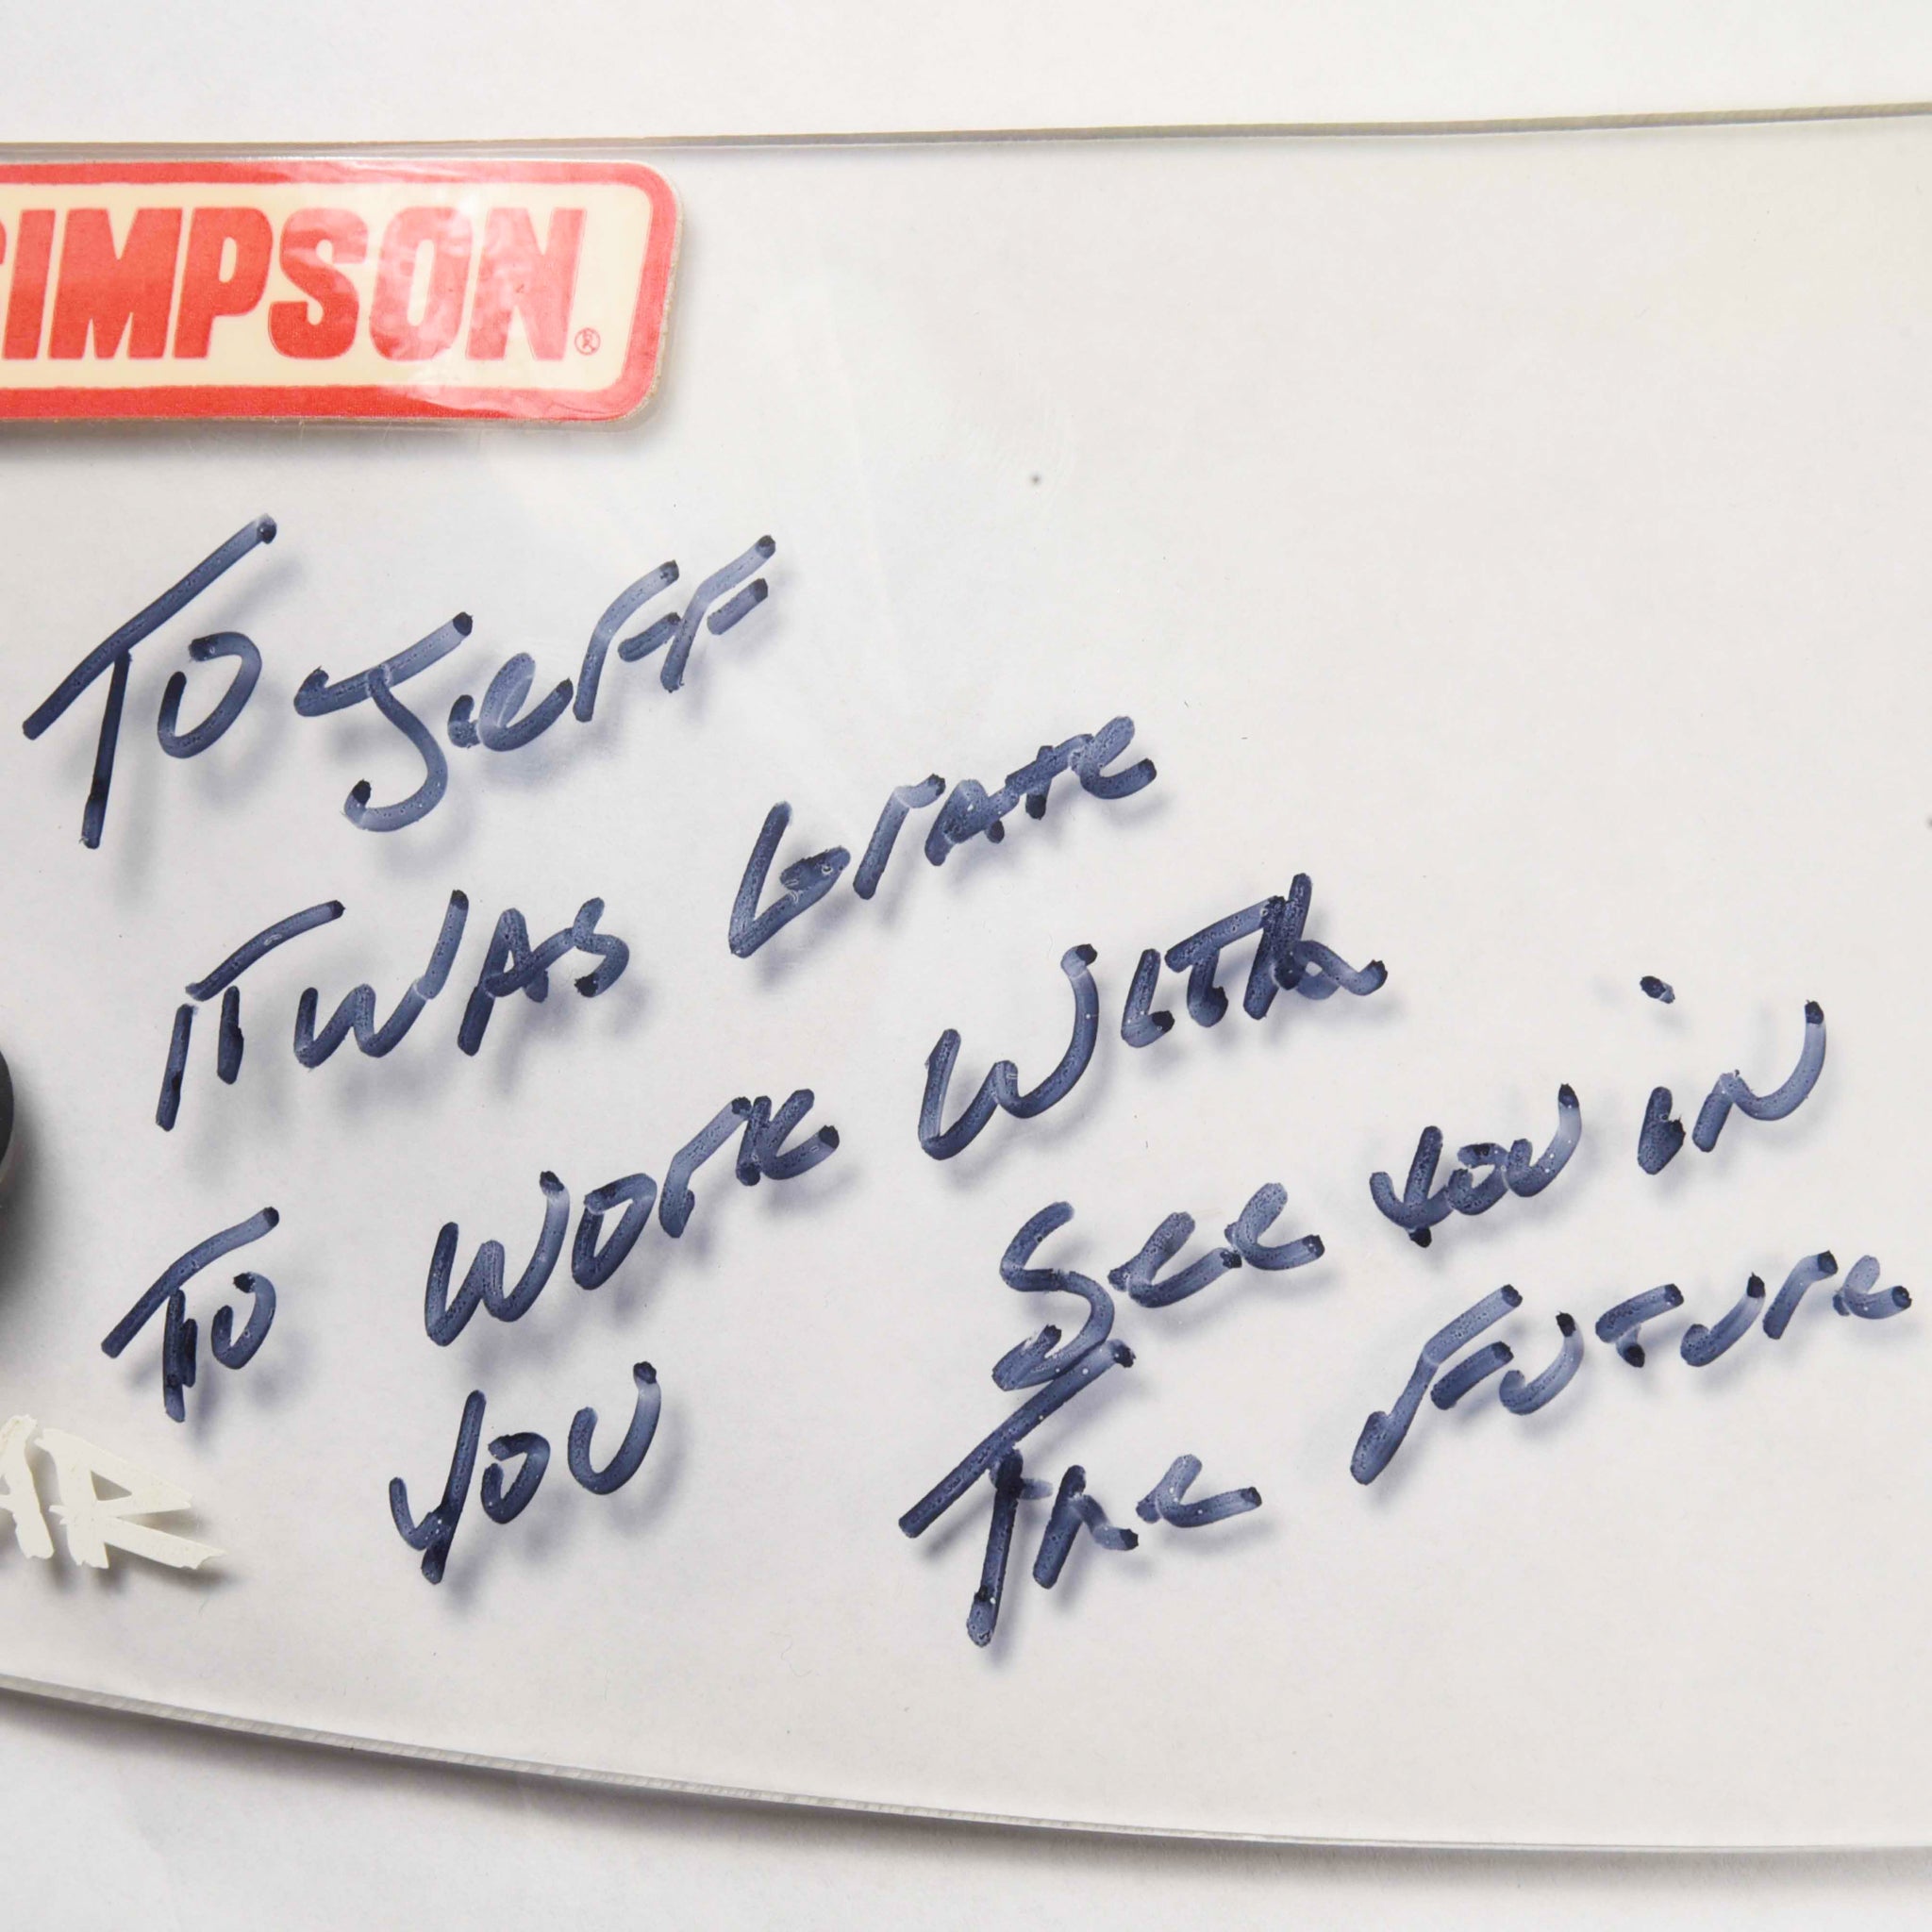 SIMPSON®
To Jeff
IT WAS GrATe
To WOrK WITh
YOU
See YOU iN
The FUTUre
AR